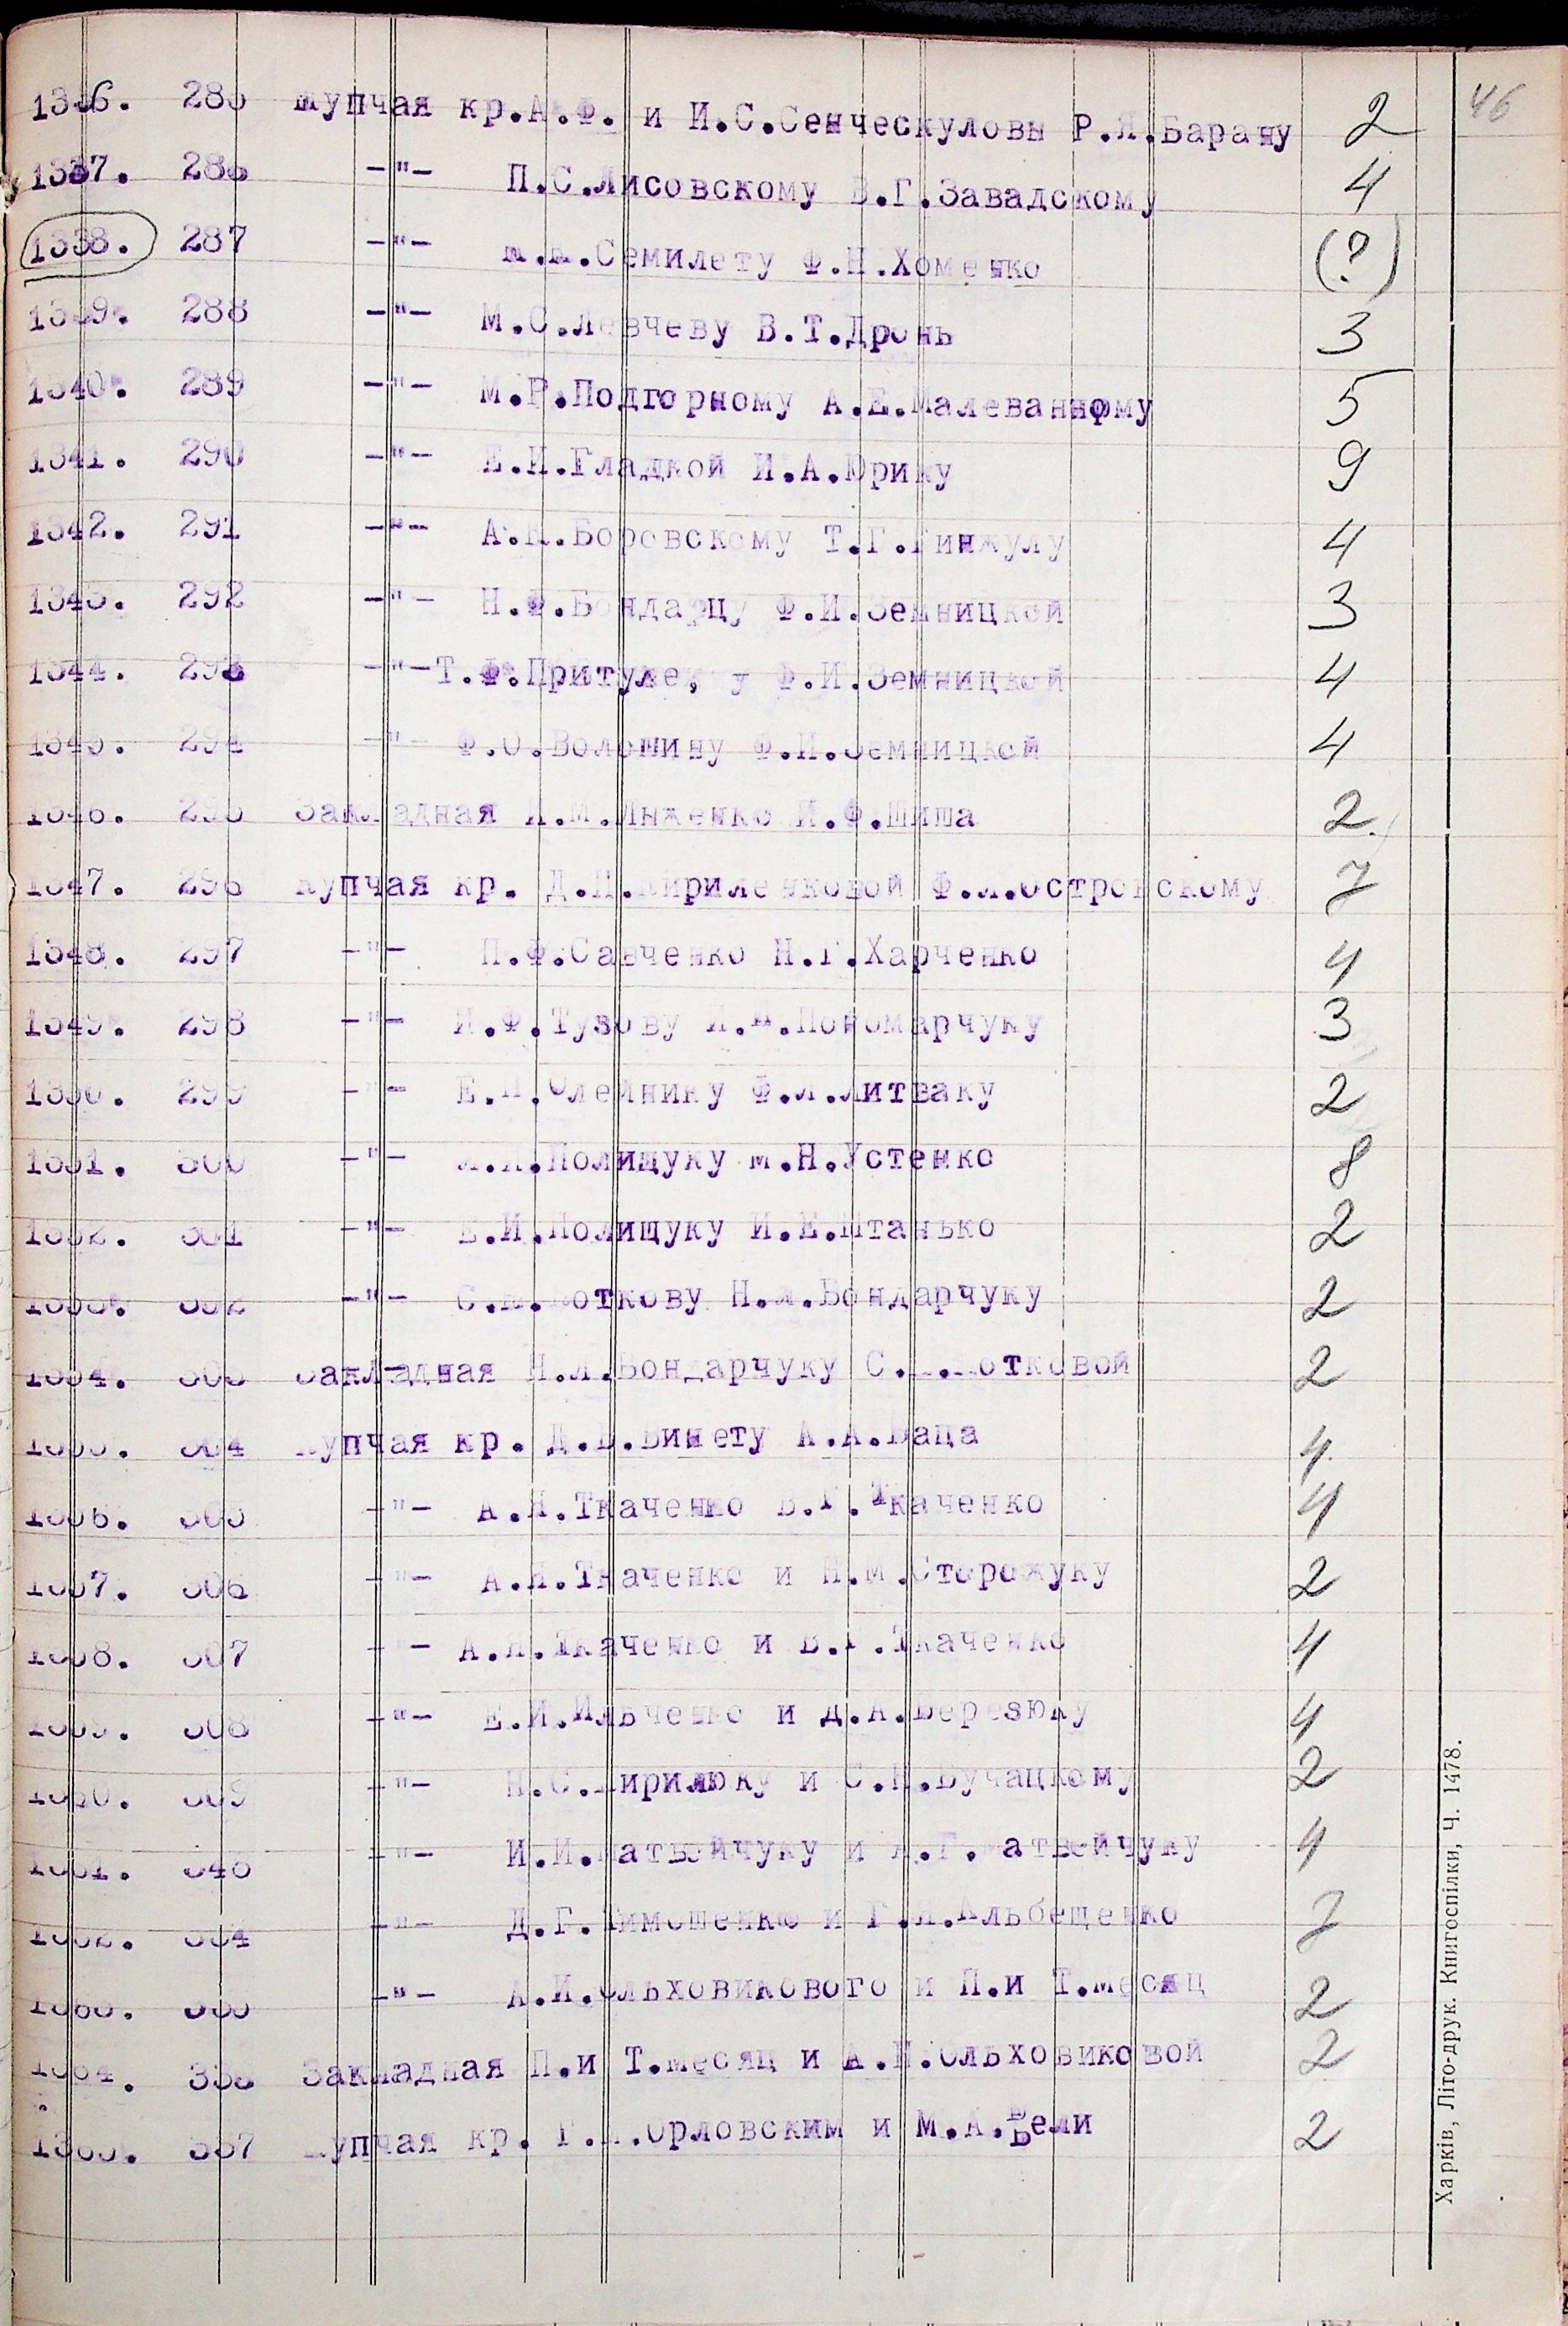 46
1336. 285 Купчая кр.А.Ф. и И.С.Сенческуловы Р.Я.Барану 2
1337. 286 -"- П.С.Лисовскому В.Г.Завадскому 4
1338. 287 -"- Семилету Ф.Н.Хоменко (?)
1339. 288 -"- М.С.Левчеву В.Т.Дронь 3
1340. 289 -"- М.Р.Подгорному А.Е.Малеванному 5
1341. 290 -"- Е.И.Гладкой И.А.Юрику 9
1342. 291 -"- А.К.Боровскому Т.Г.Гинжулу 4
1343. 292 -"- Н.Ф.Бондарцу Ф.И.Земницкой 3
1344. 293 -"- Т.Ф.Притуле, у Ф.И.Земницкой 4
1345. 294 -"- Ф.О.Волошину Ф.И.Земницкой 4
1346. 295 Закладная И.Ф.Шиша 2.
1347. 296 Купчая кр. Д.П.Кириленковой Ф.Л.Островскому 7
1348. 297 -"- П.Ф.Савченко Н.Г.Харченко 4
1349. 298 -"- И.Ф.Тузову Пономарчуку 3
1350. 299 -"- Олейнику Ф.Л.Литваку 2
1351. 300 -"- Полищуку М.Н.Устенко 8
1352. 301 -"- Е.И.Полищуку И.Е.Штанько 2
1353. 302 -"- Коткову Н.Л.Бондарчуку 2
1354. 303 Закладная Н.Л.Бондарчуку Котковой 2
1355. 304 Купчая кр. А.А.Баца 4.
1356. 305 -"- А.Я.Ткаченко В.Г.Ткаченко 4
1357. 306 -"- А.Я.Ткаченко и Н.М.Сторожуку 2
1358. 307 -"- А.Я.Ткаченко и В.Г.Ткаченко 4
1359. 308 -"- Е.И.Ильченко и Д.А.Березюку 4
1360. 309 -"- Н.С.Кирилюку и С.К.Бучацкому 2
1361. 346 -"- И.И.Матвейчуку и Матвейчуку 4
1362. 354 -"- Д.Г.Тимошенко и Альбещенко 7
1363. 355 -"- А.И.Ольховикового и П.и Т.Месяц 2
1364. 356 Закладная П.и Т.Месяц и А.И.Ольховиковой 2
1365. 357 Купчая кр. Орловским и М.А.Бели 2
Харків, Літо-друк. Книгоспілки, Ч. 1478.